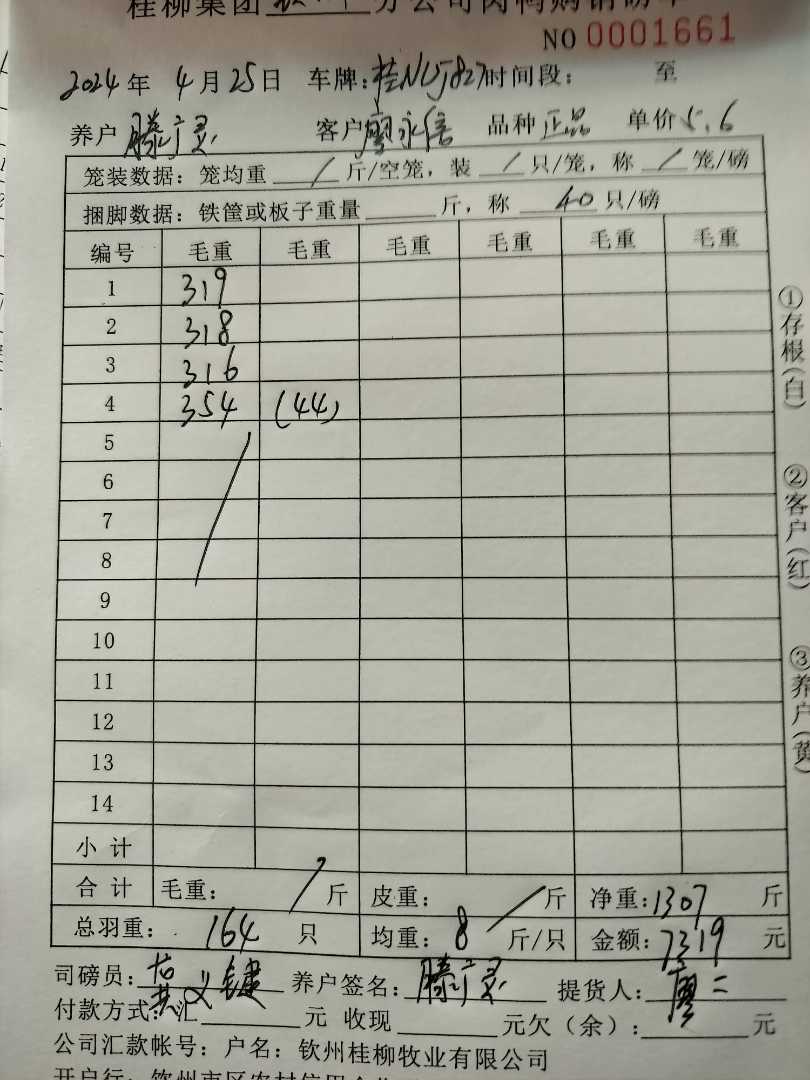 桂柳集团 分公司肉鸭购销磅单
NO 0001661
2024年 4月25日 车牌:桂NUJ827时间段: 至
养户 滕广灵 客户廖永信 品种 正品 单价 5.6
笼装数据: 笼均重 / 斤/空笼, 装 / 只/笼, 称 / 笼/磅
捆脚数据: 铁筐或板子重量 斤, 称 40 只/磅
编号 毛重 毛重 毛重 毛重 毛重 毛重
1 319
2 318
3 316
4 354 (44)
5
6
7
8
9
10
11
12
13
14
小计
合计 毛重: / 斤 皮重: / 斤 净重:1307 斤
总羽重: 164 只 均重: 8 斤/只 金额:7319 元
司磅员: 黄义键 养户签名: 滕广灵 提货人: 廖二
付款方式:汇 元 收现 元欠(余): 元
公司汇款帐号: 户名: 钦州桂柳牧业有限公司
开户行: 钦州市区农村信用合作
①存根(白)
②客户(红)
③养户(黄)